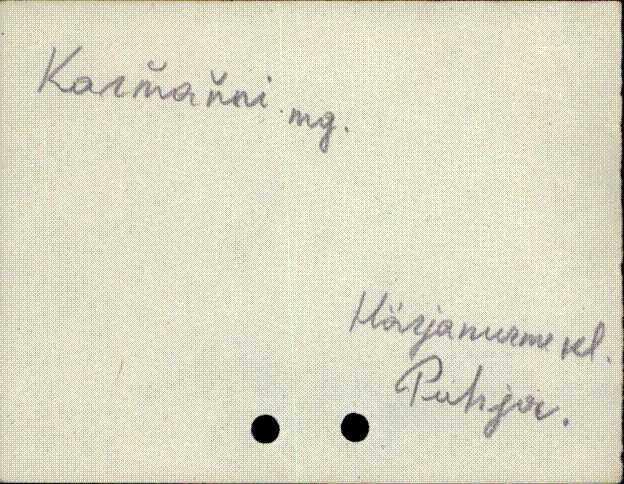 Karm̆an̆ni mg.
Härjanurme kl.
Puhja.